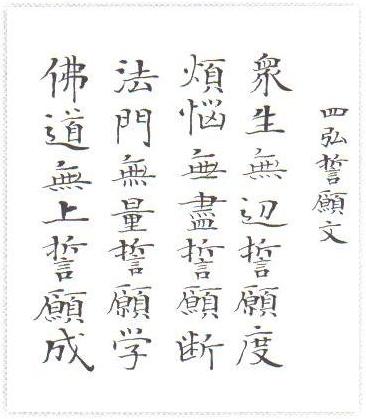 四弘誓願文
衆生無辺誓願度
煩悩無盡誓願断
法門無量誓願学
佛道無上誓願成